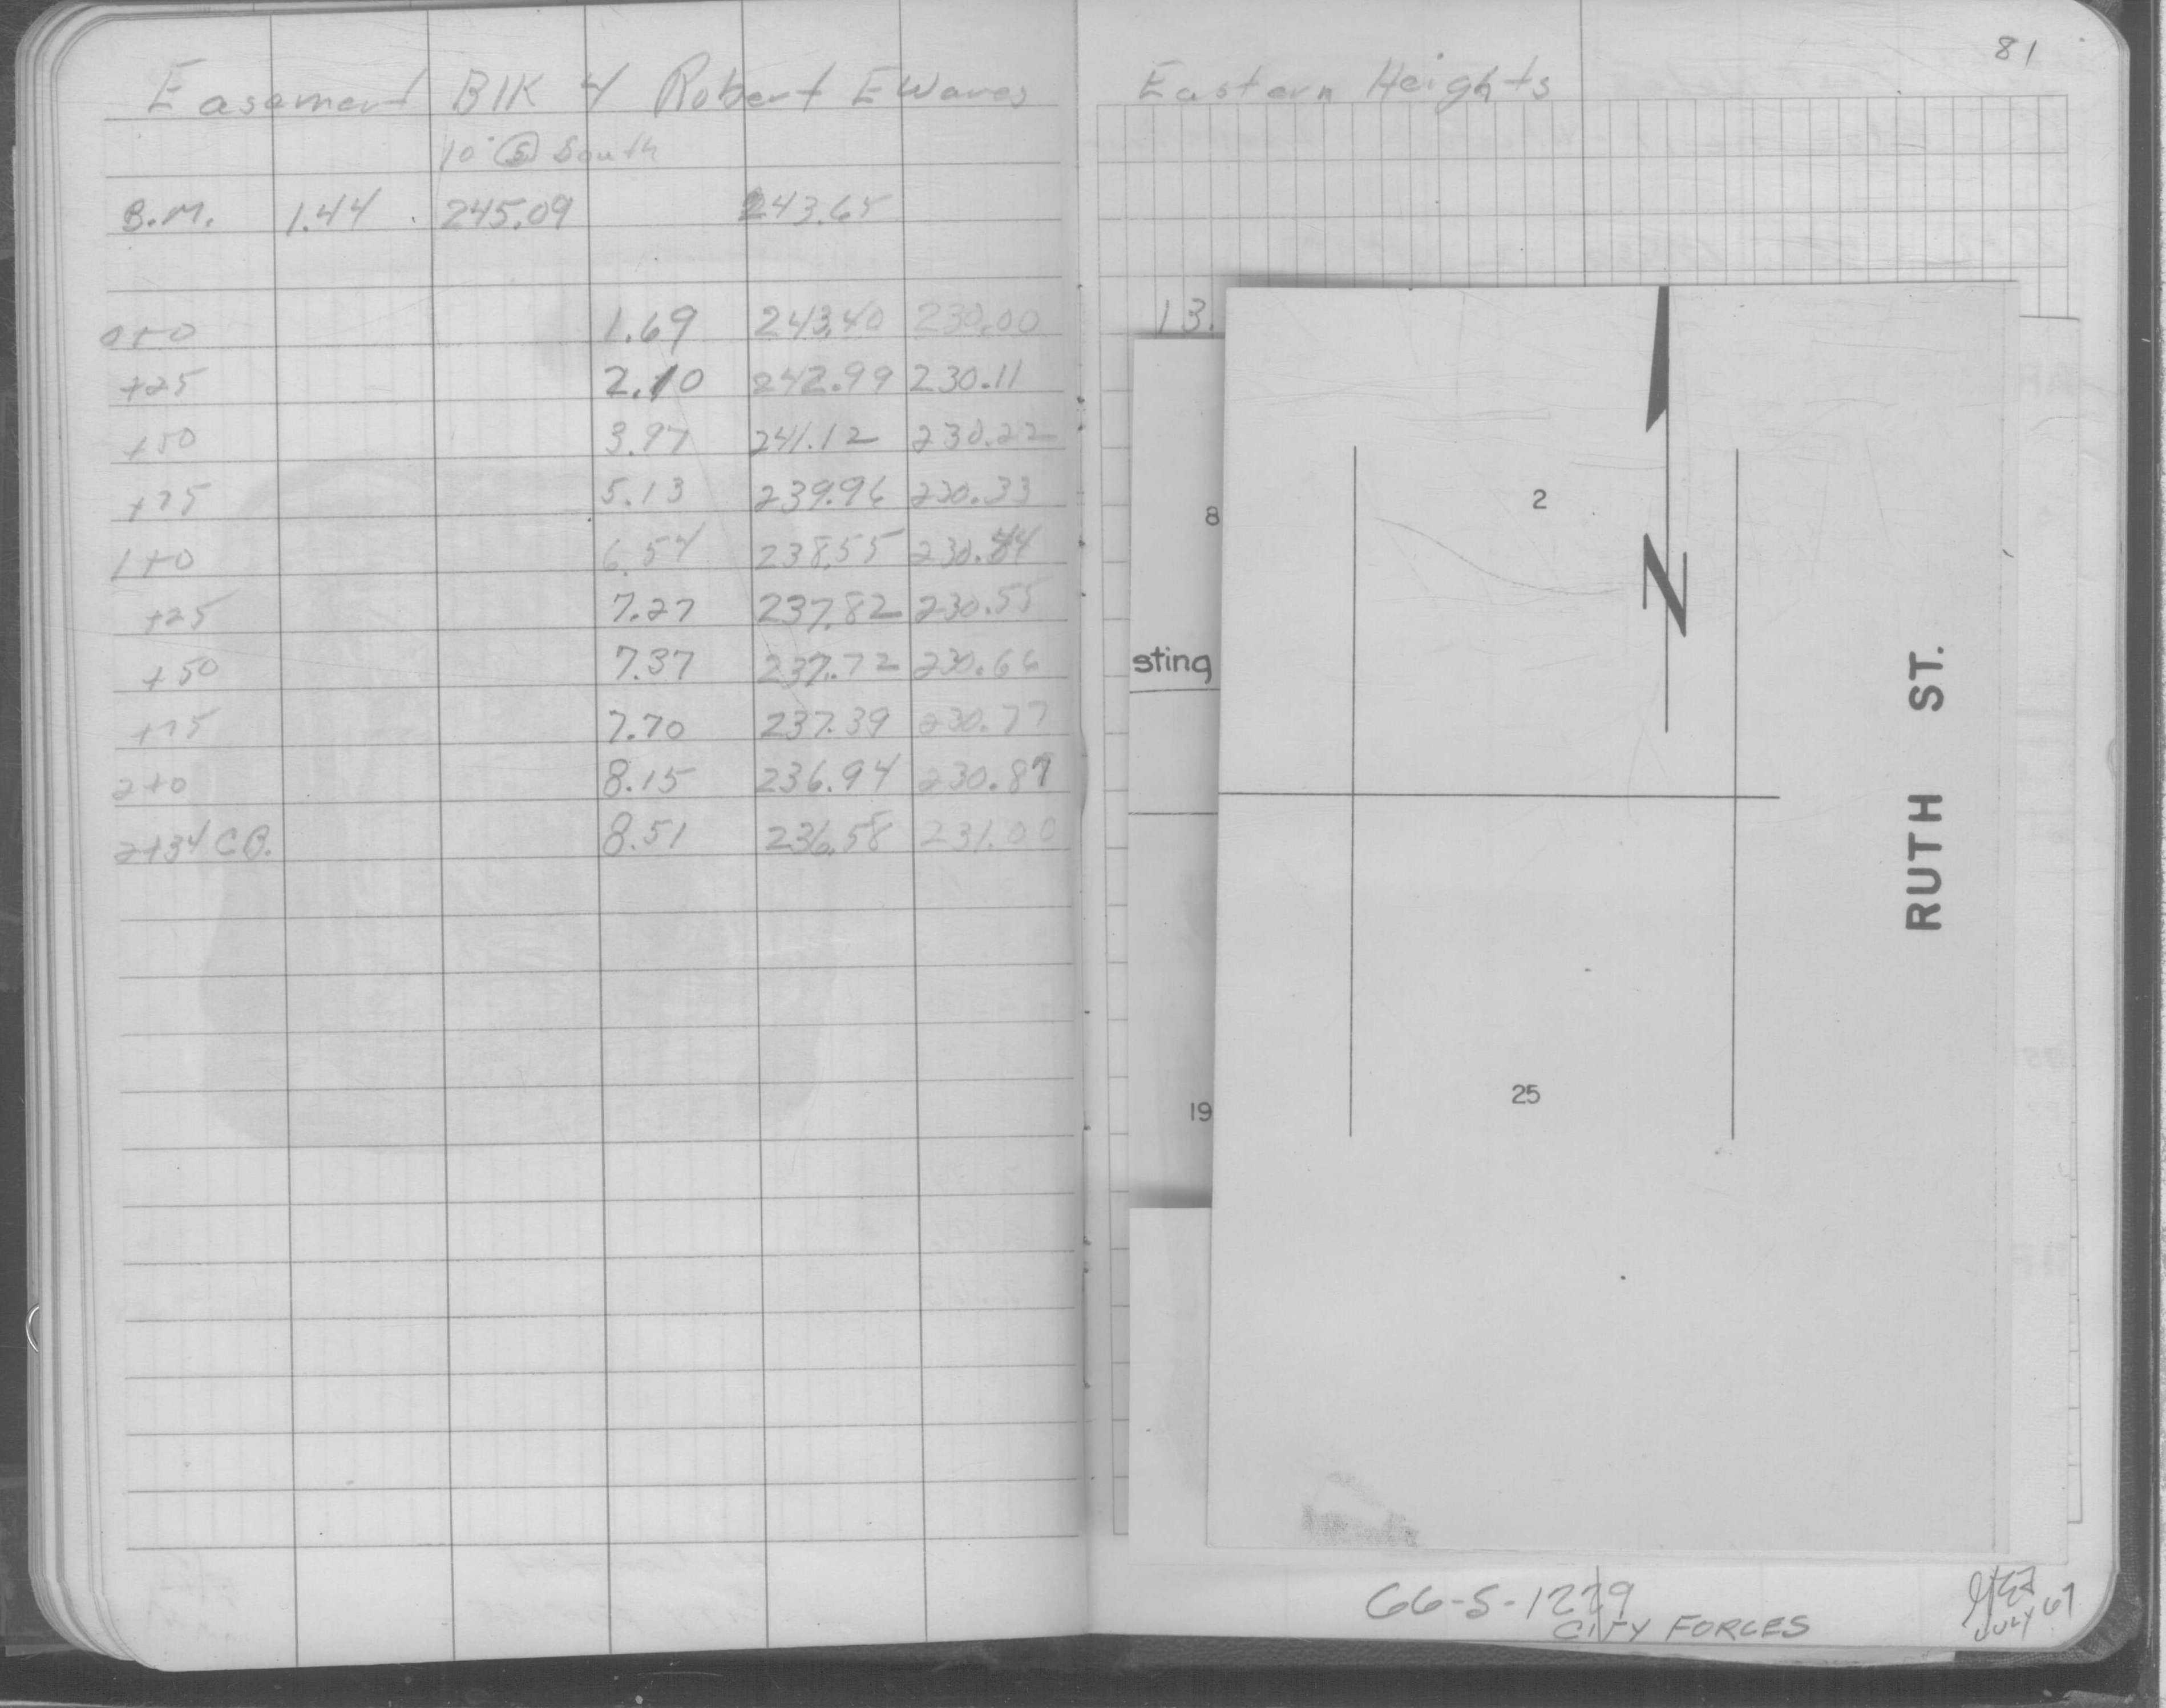 Easement Blk 4 Robert E Wares
10' S South
B.M. 1.44 245.09 243.65
0+0 1.69 243.40 230.00
+25 2.10 242.99 230.11
+50 3.97 241.12 230.22
+75 5.13 239.96 230.33
1+0 6.54 238.55 230.44
+25 7.27 237.82 230.55
+50 7.37 237.72 230.66
+75 7.70 237.39 230.77
2+0 8.15 236.94 230.87
2+34 C.B. 8.51 236.58 231.00
81
Eastern Heights
13.
8
2
N
sting
RUTH ST.
19
25
66-S-1229
CITY FORCES
JULY 67